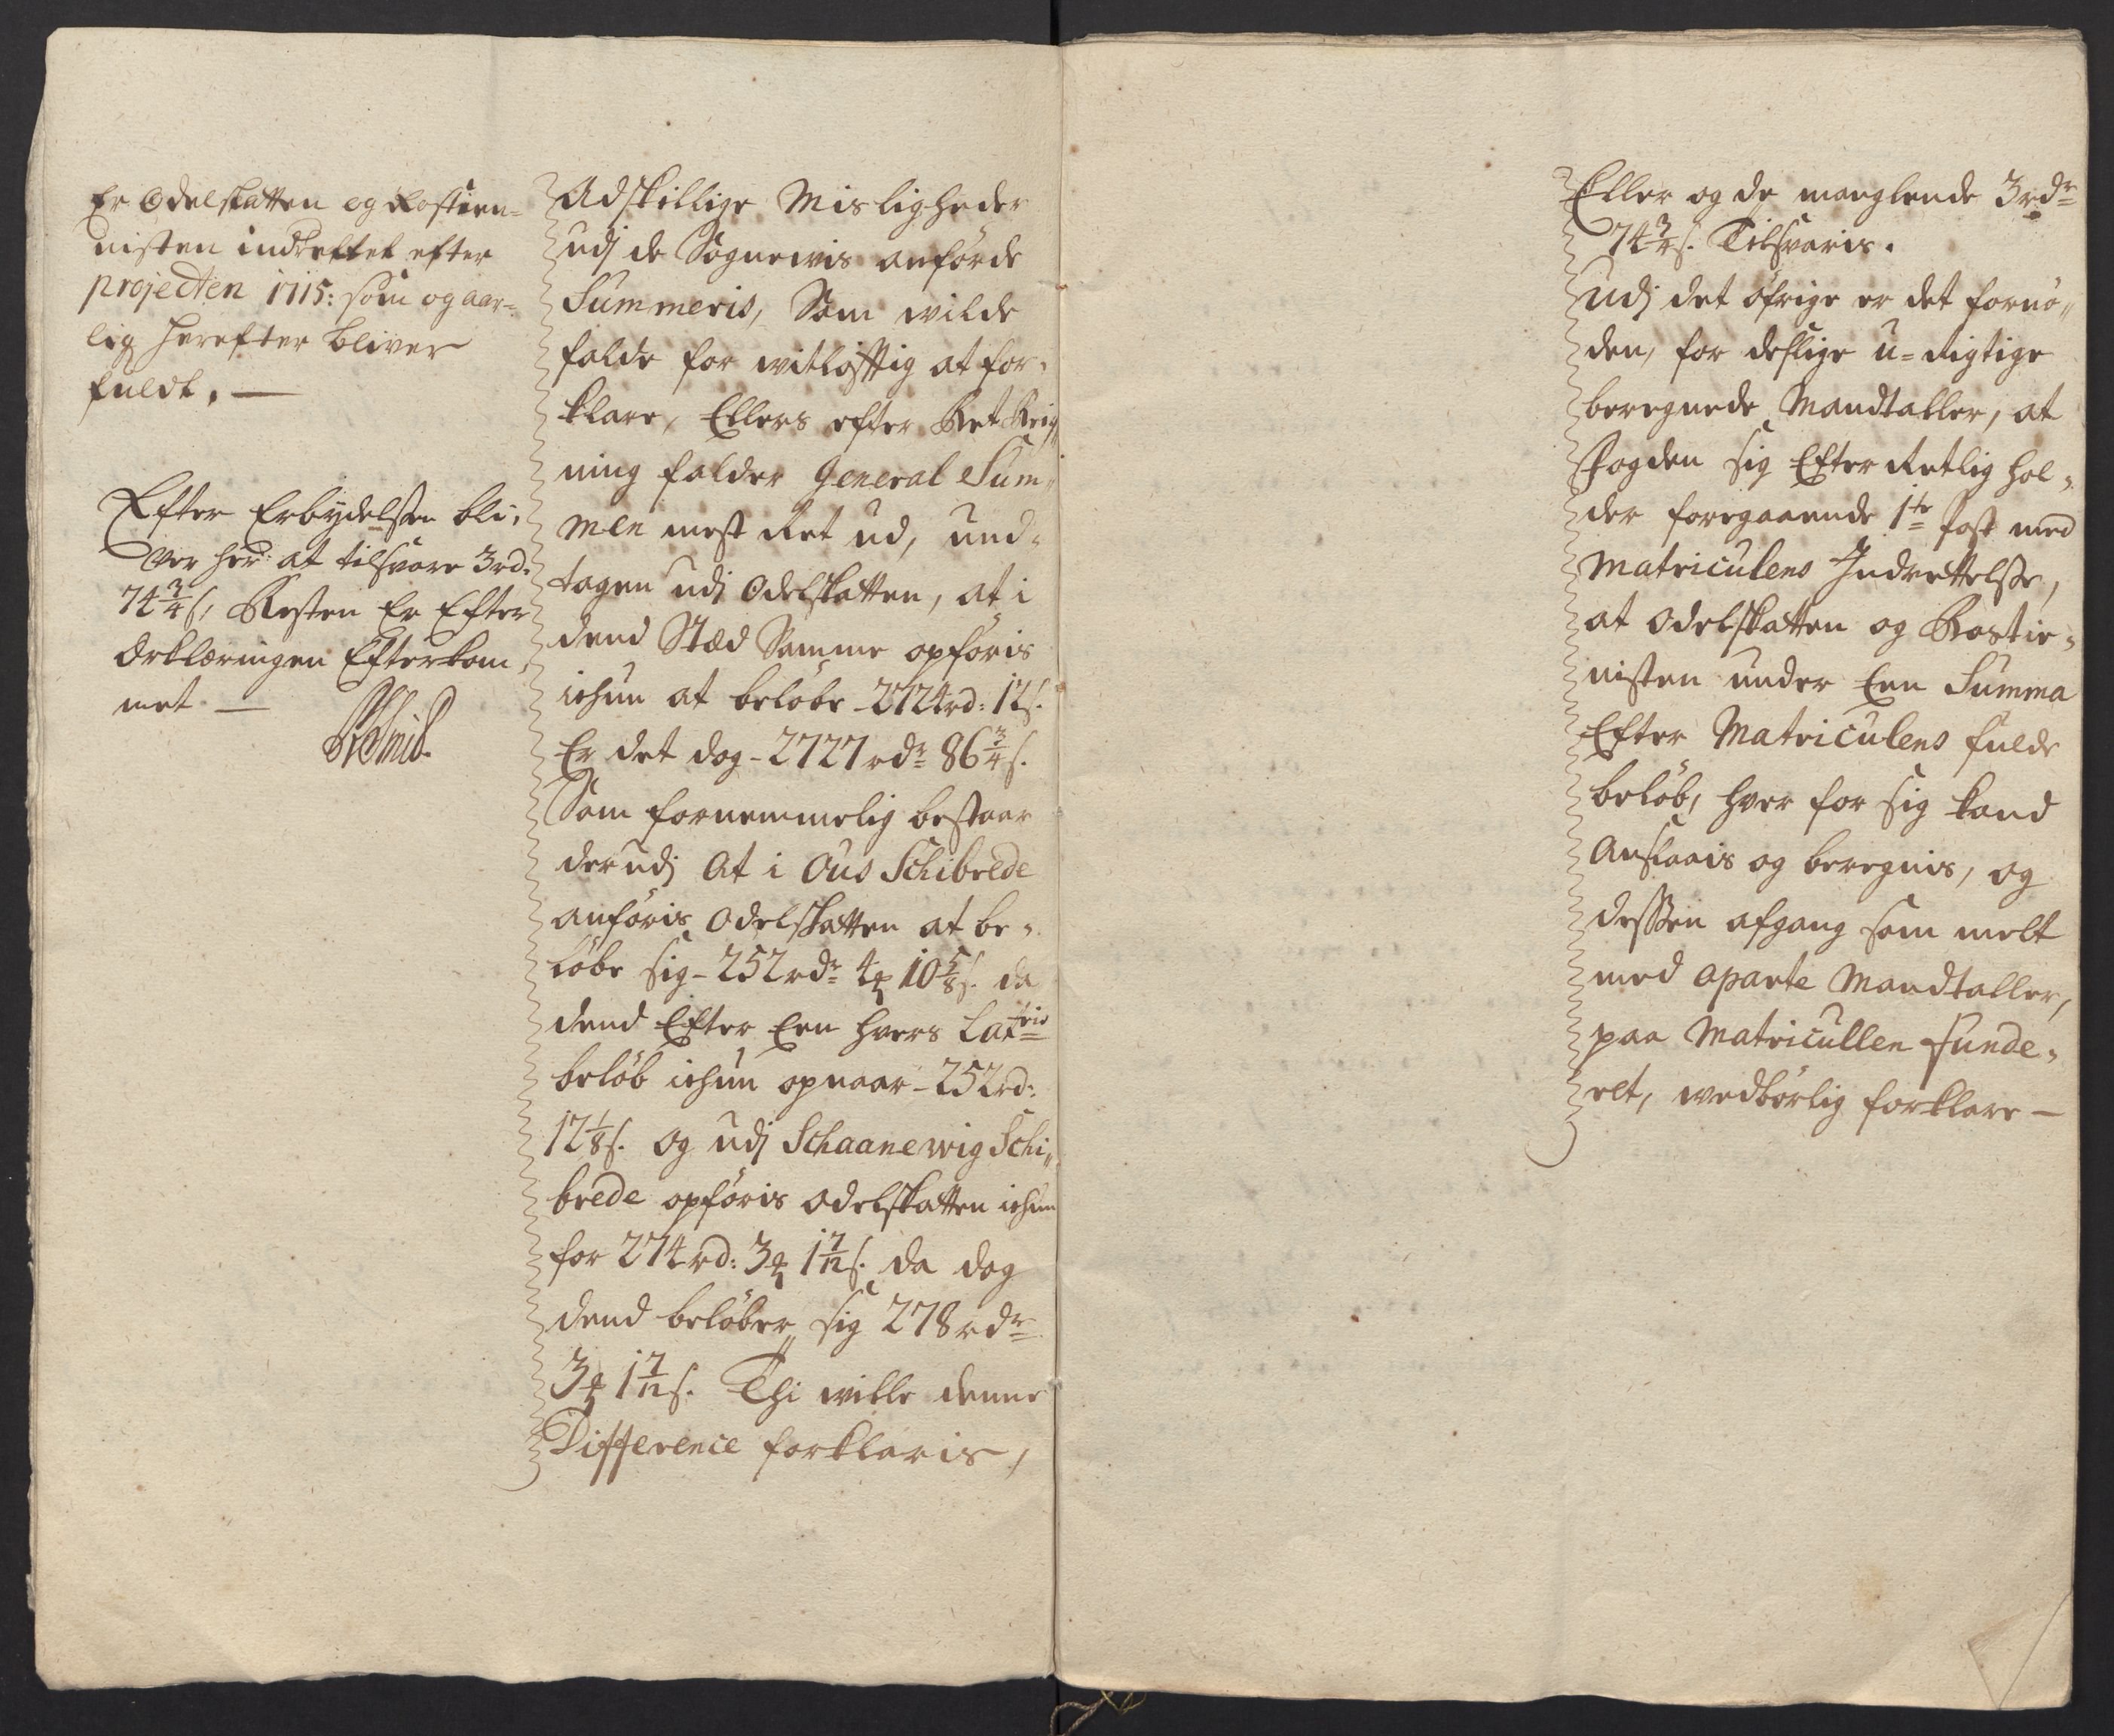 Er Odelskatten og Rostien-
nisten indrettet efter
projecten 1715: som og aar-
lig herefter bliver
fuldt. —
Efter Erbydelssen bli-
ver her at tilsvare 3 rd.
74 3/4 s, Resten Er Efter
Erklæringen Efterkom
met —
Adskillige Misligheder
udj de Sognevis anførde
Summeris, Som wilde
falde for witløfftig at for-
klare, Ellers efter Ret Reig-
ning falder General Sum-
men mest Ret ud, und-
tagen udj Odelskatten, at i
dend Stæd Samme opføris
ichun at beløbe - 2724 rd: 12 s.
Er det dog - 2727 rdr 86 3/4 s.
Som fornemmelig bestaar
derudj At i Ous Schibrede
anføris Odelskatten at be-
løbe sig - 252 rdr 4 ℔ 10 5/8 s. da
dend Efter Een hvers Lateris
beløb ichun opnaar - 252 rd:
12 1/8 s. og udj Schaanewig Schi-
brede opføris odelskatten ichun
for 274 rd: 3 ℔ 1 7/12 s. da dog
dend beløber sig 278 rdr
3 ℔ 1 7/12 s. Thi wille denne
Difference forklaris,
Eller og de manglende 3 rdr
74 3/4 s. Tilsvaris.
Udj det øfrige er det fornø-
den, for deslige u-Rigtige
beregnede Mandtaller, at
Fogden sig Efter Retlig hol-
der foregaaende 1te Post med
Matriculens Indrettelsse,
at odelskatten og Rostie-
nisten under Een Summa
Efter Matriculens fulde
beløb, hver for sig kand
Anslaais og beregnis, og
dessen afgang som melt
med aparte Mandtaller,
paa Matricullen funde-
ret, wedbørlig forklare —